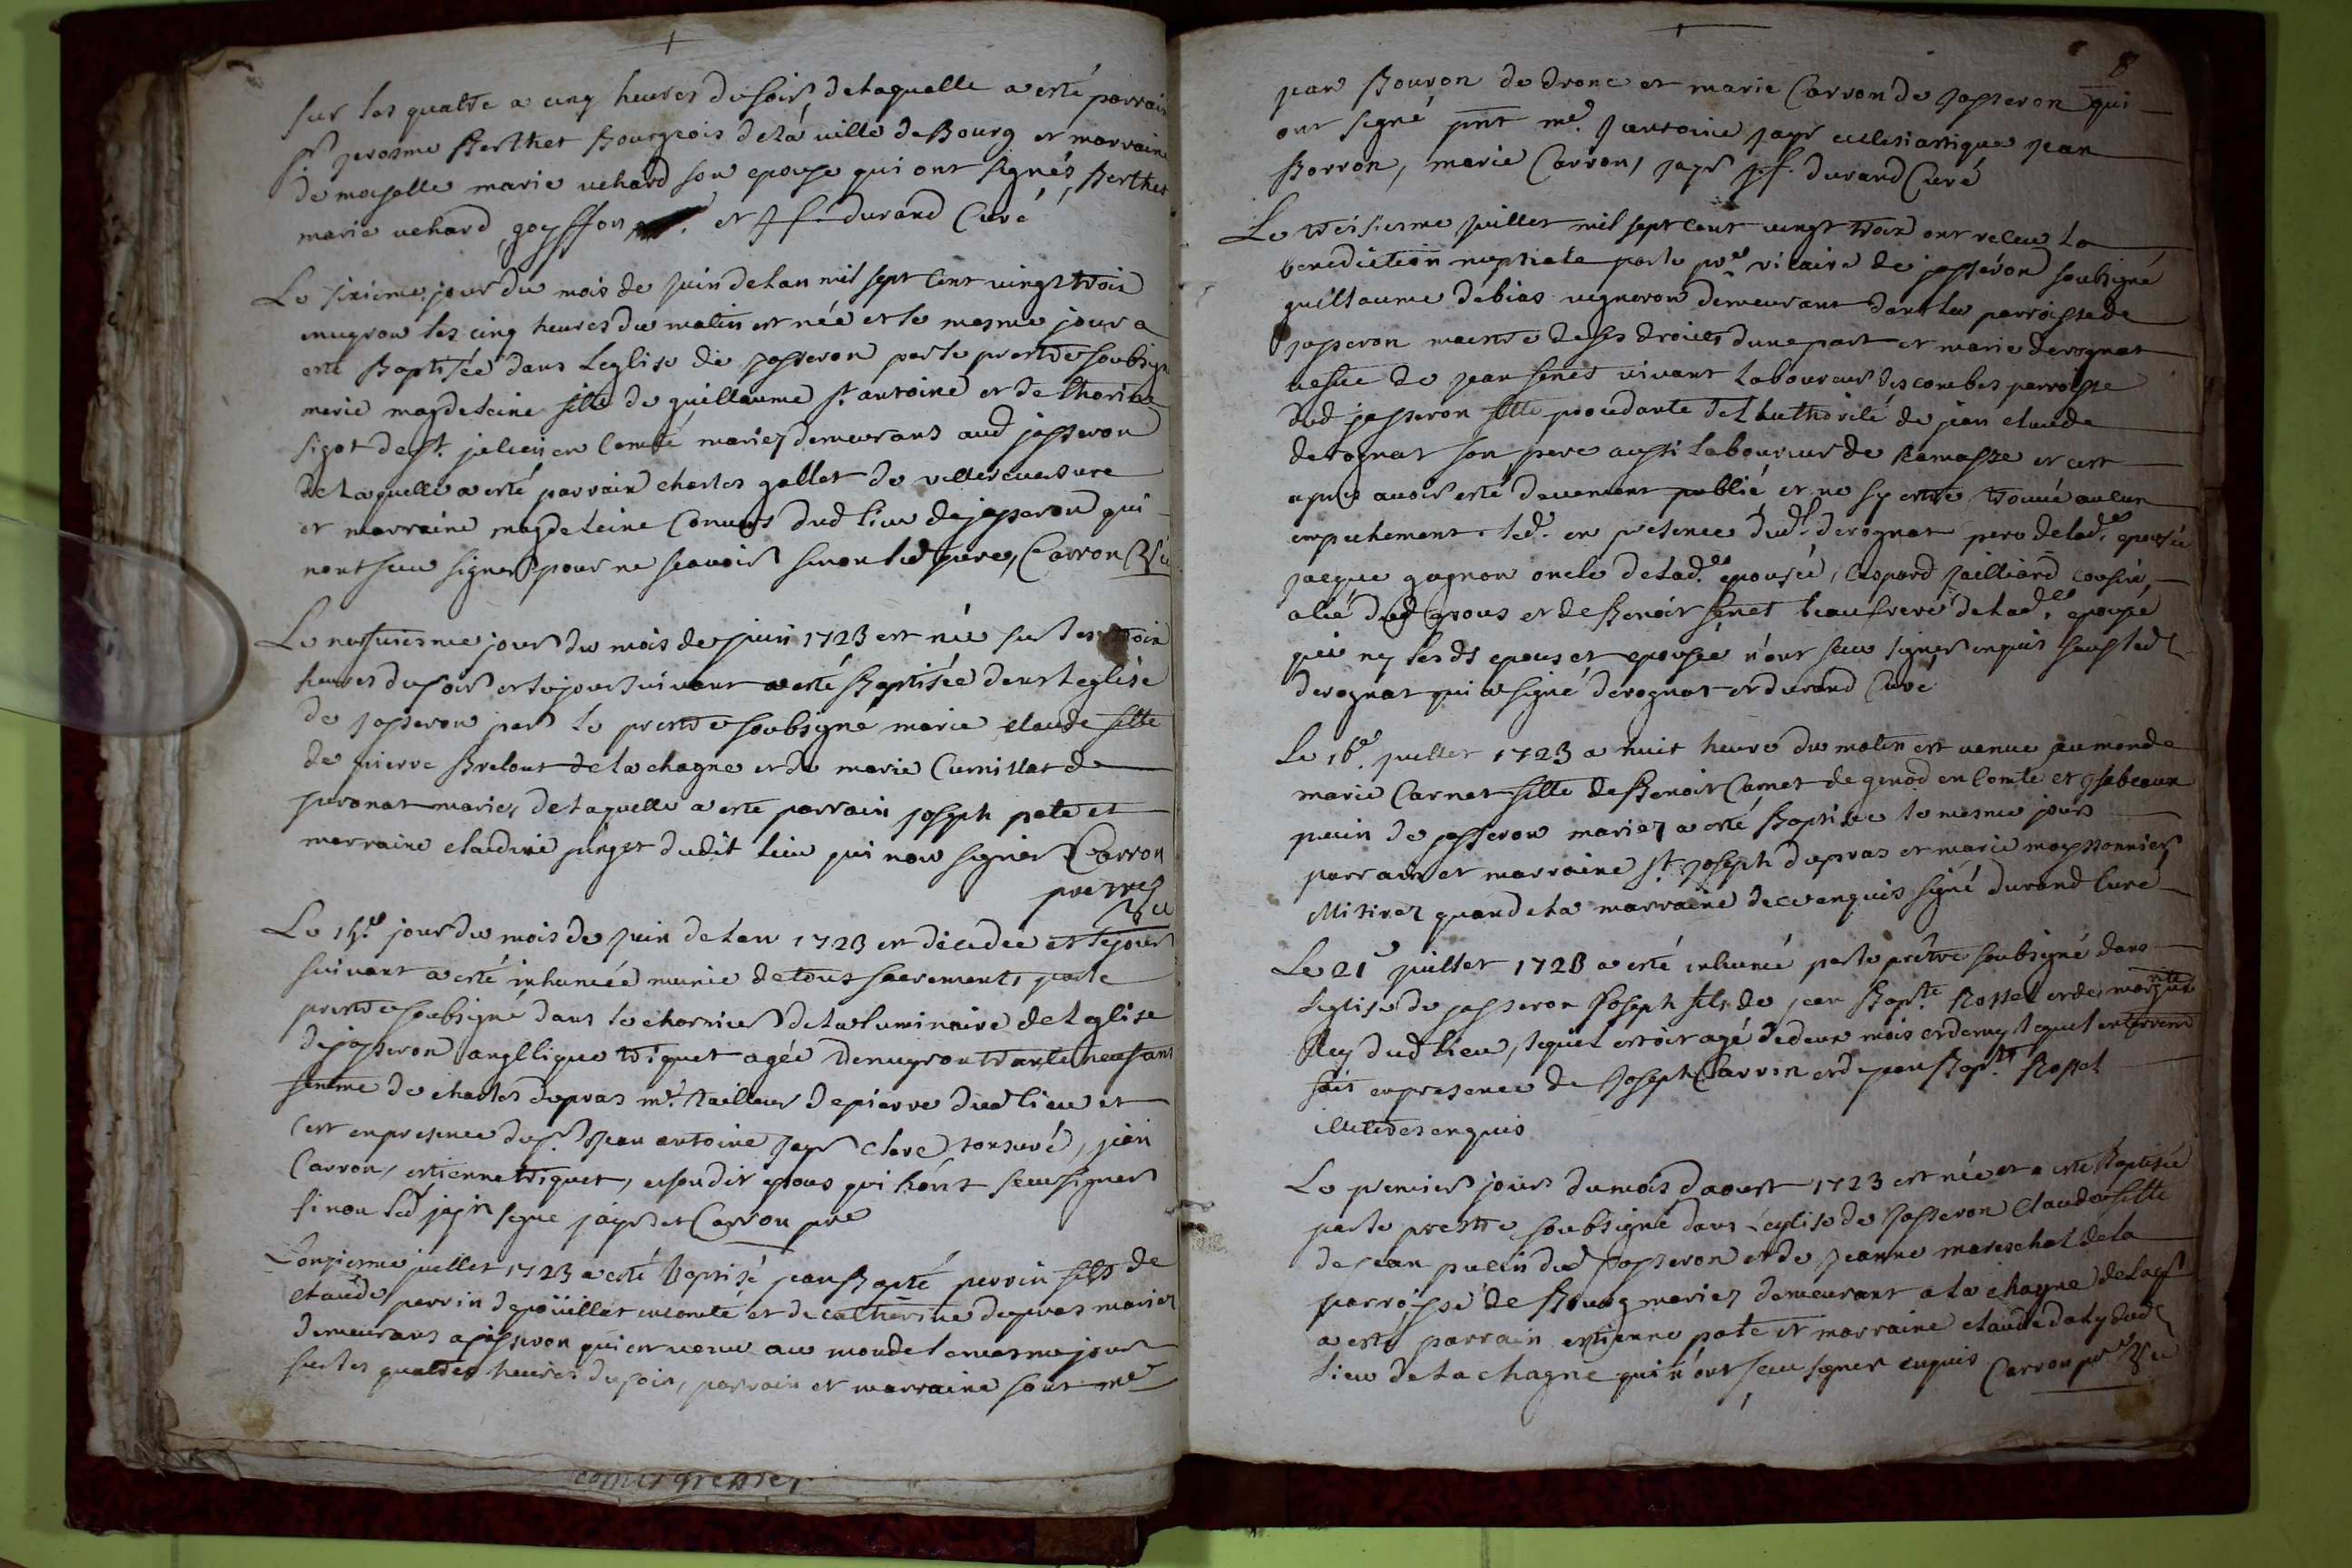 sur les quatre a cinq heures du soir, de laquelle a esté parrain
sr jerosme Berthet Bourgeois de la ville de Bourg et marraine
demoiselle marie uehard son epouse qui ont signés, Berthet
marie uehard, goyffon et durand Curé
Le sixieme jour du mois de juin de lan mil sept cent vingt trois
enuyron les cinq heures du matin est née et le mesme jour a
esté Baptisée dans Leglise de jasseron par le prestre soubsigné
marie magdeleine fille de guillaume st antoine et de
sigot de st. julien en Comté mariez demeurans aud jasseron
de laquelle a esté parrain charles gallet de villereuersure
et marraine magdeleine Conuers dud lieu de jasseron qui
nont sceu signer pour ne scauoir sinon led Carron
Le jour du mois de juin 1723 est née sur les trois
heures du soir et le jour suiuant a esté Baptisée dans leglise
de jasseron par le prestre soubsigné marie claude fille
de pierre Brelout de la chagne et de marie Cumillat de
juronat mariez de laquelle a esté parrain joseph pate et
marraine claudine pinget dudit lieu qui non signer Carron
Le jour du mois de juin de lan 1723 est décedée et le jour
suiuant a esté inhumée munie de tous sacrements par le
prestre soubsigné dans le charnier de la luminaire de leglise
de jasseron anglique triquet agée denuyron trante neuf ans
femme de charles dupras me tailleur de pierre dud lieu et
cest en presence du sr jean antoine jayr clerc tonsuré, jean
Carron, estienne triquet, et sondit epous qui n'ont sceu signer
sinon led jayr jayr et Carron pre
Lonzieme juillet 1723 a esté baptisé jean Bapté perrin fils de
claude perrin de poüillat en comté et de catherine dupras mariez
demeurans a jasseron qui est venu au monde le mesme jour
sur les quattres heures du soir, parrain et marraine sont me
8
jean Bouron de drone et marie Carron de jasseron qui
ont signé pnt me. J antoine jayr ecclesiastique jean
Borron, marie Carron, jayr durand Curé
Le treisieme juillet mil sept cent vingt trois ont receu la
benediction nuptiale par le pre vicaire de jasséron soubsigné
guillaume debias vigneron demeurant dans la parroisse de
jasseron maitre de ses droicts dune part et marie derognat
uefue de jean senet vivant laboureur des combes parroisse
dud jasseron fille procedante de lauthorité de jean claude
derognat son pere aussi laboureur de Ramasse et cest
apres auoir esté deuement publié et ne sy estre trouué aucun
empechement led. en presence dud. derognat pere de lad. epousée
jacque gagnon oncle de lad. epousée, gaspard jailliard cousin
alié dud epous et de Benoit senet beaufrere de lad. epouse
qui ny lesds epous et epousée n'ont sceu signer enquis sauf led
derognat qui a signé derognat et durand Curé
Le 16e. juillet 1723 a huit heure du matin est venue au monde
marie Carnet fille de Benoit Carnet de genod en Comté et ysabeaux
puuin de jasseron mariez a esté Baptisée le mesme jours
parrain et marraine sr. joseph dupras et marie moyssonnier
illitirez quand a la marraine de ce enquis signé durand Curé
Le 21e juillet 1723 a esté inhumé par le prêtre soubsigné dans
leglise de jasseron joseph fils de jean Bapte Rosset et de margueritte
Rey dud lieu, lequel estoit agé de deux mois et demy lequel enterrem
fait en presence de joseph Carrin et de jean Bapte Rosset
illitires enquis
Le premier jours du mois daoust 1723 est née et a esté Baptisée
par le prestre soubsigné dans leglise de jasseron Claude fille
de jean puuin dud jasseron et de jeanne mareschal de la
parroisse de Bourg mariez demeurant a la chagne de laqle
a esté parrain estienne pate et marraine claudé daly dud
lieu de la chagne qui n'ont sceu signer enquis Carron pre